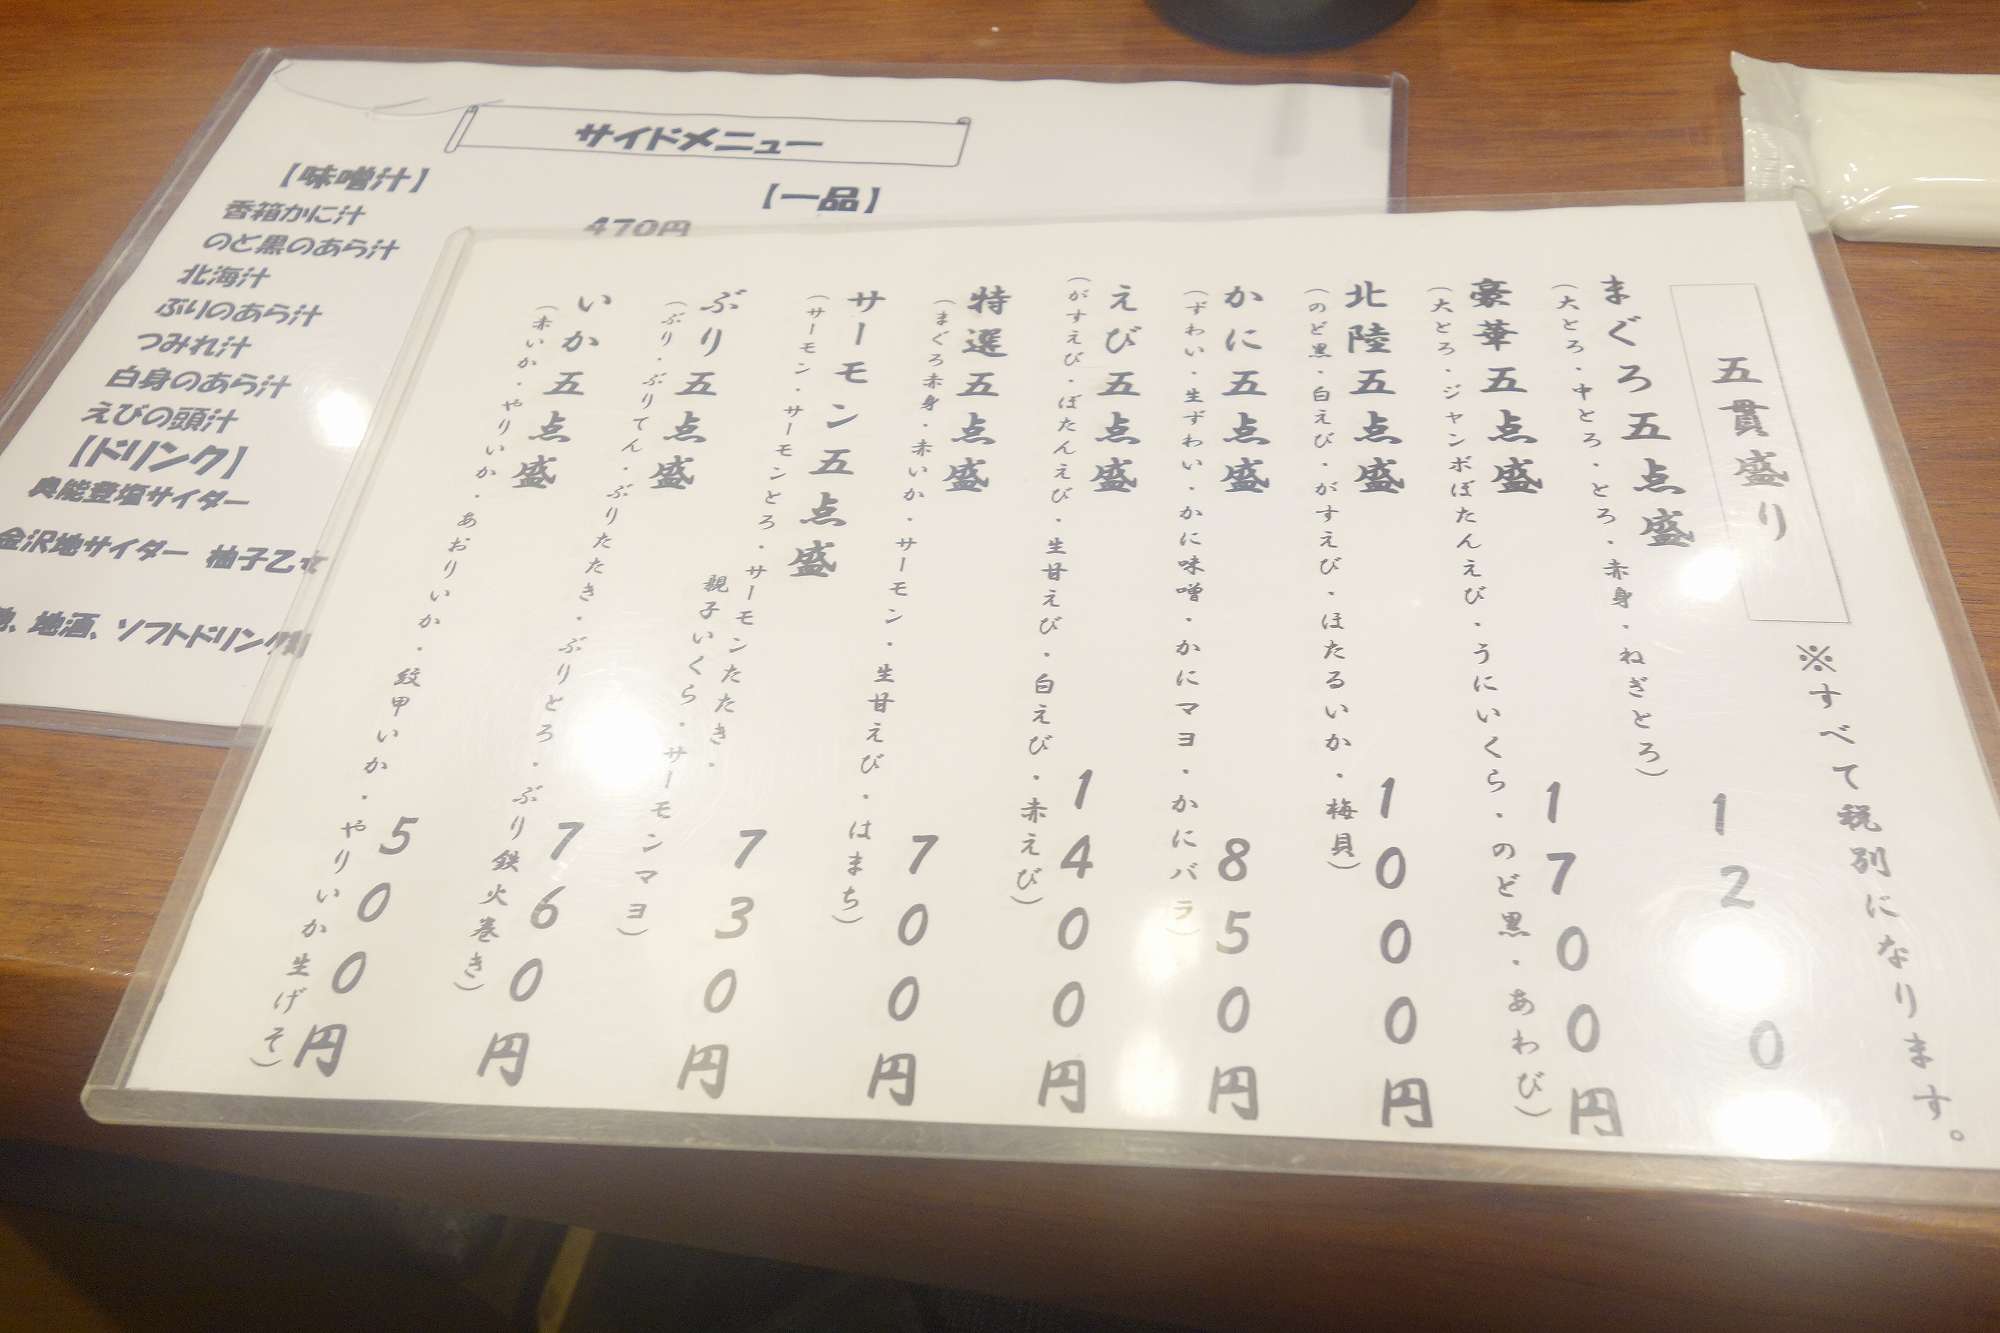 五貫盛り
※すべて税別になります。
まぐろ五点盛
(大とろ・中とろ・とろ・赤身・ねぎとろ)
豪華五点盛
(大とろ・ジャンボぼたんえび・うにいくら・のど黒・あわび)
1700円
北陸五点盛
(のど黒・白えび・がすえび・ほたるいか・梅貝)
1000円
かに五点盛
(ずわい・生ずわい・かに味噌・かにマヨ・かにバラ)
850円
えび五点盛
(がすえび・ぼたんえび・生甘えび・白えび・赤えび)
1400円
特選五点盛
(まぐろ赤身・赤いか・サーモン・生甘えび・はまち)
700円
サーモン五点盛
(サーモン・サーモンとろ・サーモンたたき・
親子いくら・サーモンマヨ)
730円
ぶり五点盛
(ぶり・ぶりてん・ぶりたたき・ぶりとろ・ぶり鉄火巻き)
760円
いか五点盛
(赤いか・やりいか・あおりいか・紋甲いか・やりいか生げそ)
500円
サイドメニュー
【味噌汁】
香箱かに汁
のど黒のあら汁
北海汁
ぶりのあら汁
つみれ汁
白身のあら汁
えびの頭汁
【ドリンク】
奥能登塩サイダー
金沢地サイダー 柚子乙女
、地酒、ソフトドリンク
【一品】
470円